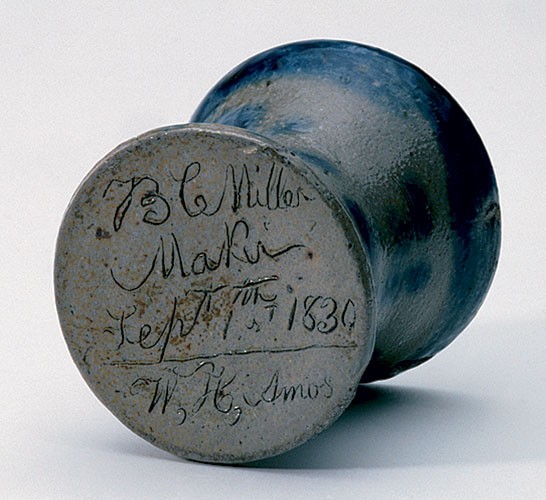 B C Miller
Maker
Sept 1st 1830
W, H, Amos